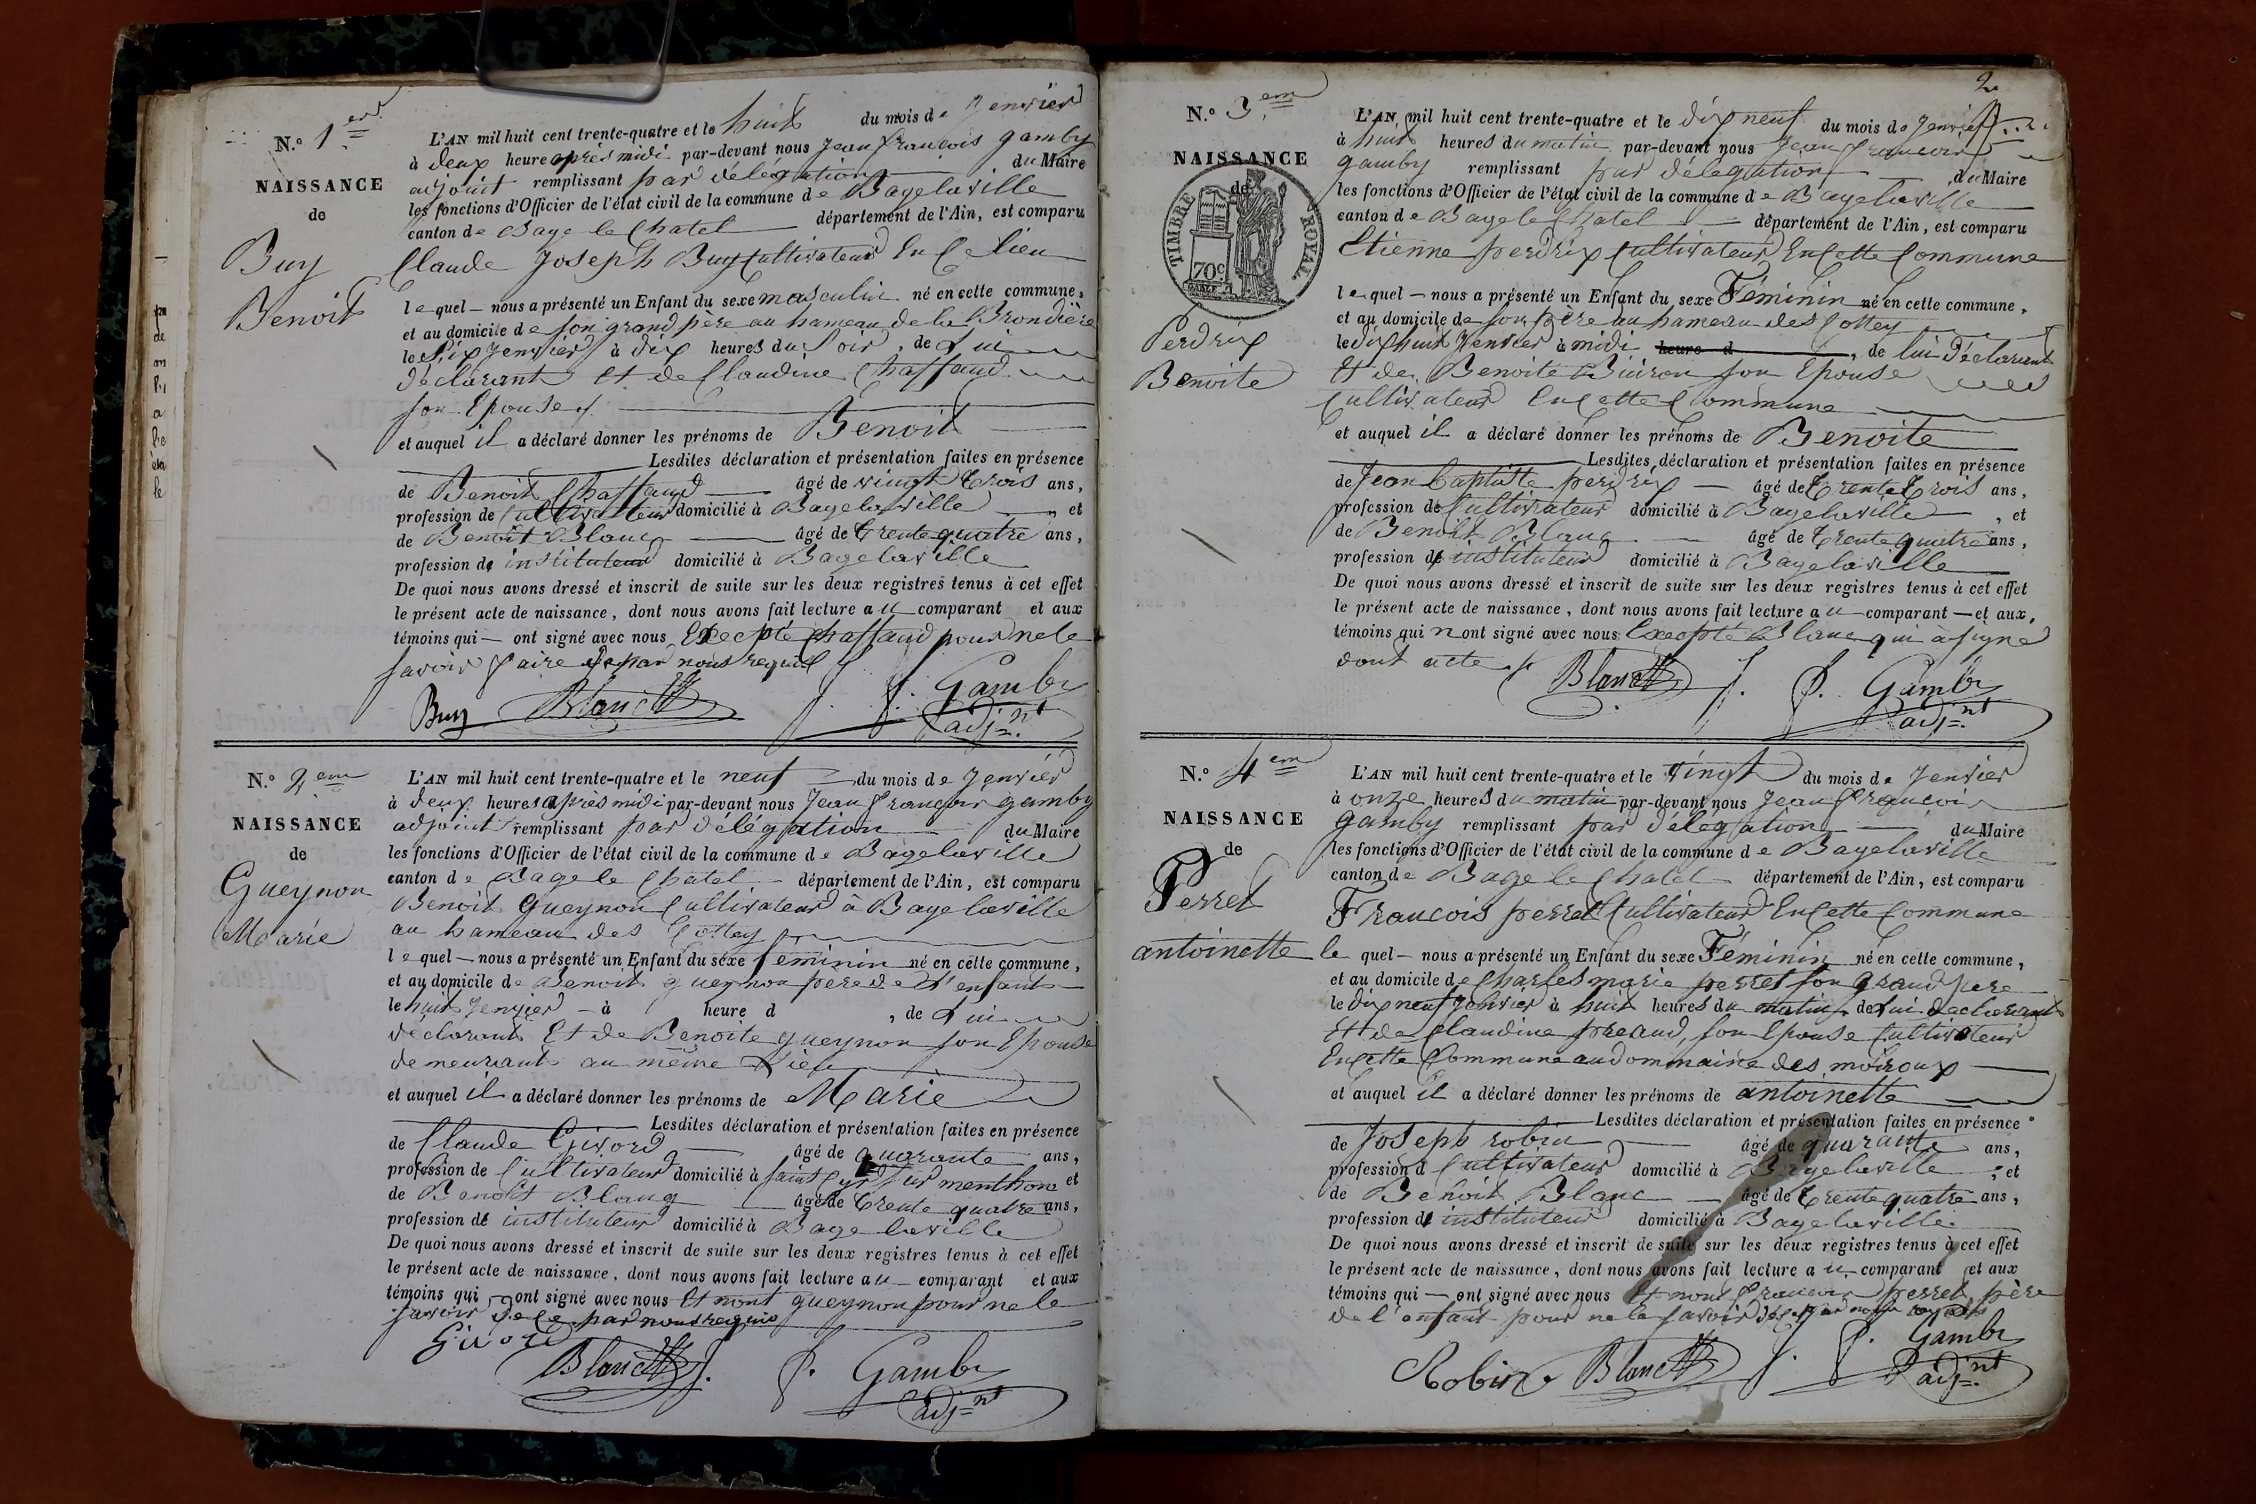 N.° 1er
NAISSANCE
de
Buy
Benoit
L'AN mil huit cent trente-quatre et le huit du mois de Jenvier
à deux heure après midi par-devant nous Jean françois gamby
adjoint remplissant par délégation du Maire
les fonctions d'Officier de l'état civil de la commune de Bagelaville
canton de Bage le Chatel département de l'Ain, est comparu
Claude Joseph Buy Cultivateur En Ce lieu
lequel — nous a présenté un Enfant du sexe masculin né en cette commune,
et au domicile de son grand père au hameau de la Brondière
le Six Jenvier à dix heures du Soir, de Lui
déclarant et de Claudine Chaffaud
son Epouse
et auquel il a déclaré donner les prénoms de Benoit
Lesdites déclaration et présentation faites en présence
de Benoit Chaffaud âgé de vingt trois ans,
profession de Cultivateur domicilié à Bagelaville, et
de Benoit Blanc âgé de trente quatre ans,
profession de instituteur domicilié à Bagelaville
De quoi nous avons dressé et inscrit de suite sur les deux registres tenus à cet effet
le présent acte de naissance, dont nous avons fait lecture au comparant et aux
témoins qui — ont signé avec nous Excepté Chaffaud pour ne le
savoir faire de par nous requis
Buy Blanc J. f. Gamby
adj.nt
N.° 2.em
NAISSANCE
de
Gueynon
Marie
L'AN mil huit cent trente-quatre et le neuf du mois de Jenvier
à deux heures après midi par-devant nous Jean françois gamby
adjoint remplissant par délégation du Maire
les fonctions d'Officier de l'état civil de la commune de Bagelaville
canton de Bage le Chatel département de l'Ain, est comparu
Benoit Gueynon Cultivateur à Bagelaville
au hameau des Cottey
lequel — nous a présenté un Enfant du sexe feminin né en cette commune,
et au domicile de Benoit gueynon père de l'enfant
le huit Jenvier à heure d , de Lui
déclarant Et de Benoite gueynon son Epouse
demeurant au même Lieu
et auquel il a déclaré donner les prénoms de Marie
Lesdites déclaration et présentation faites en présence
de Claude Givord âgé de quarante ans,
profession de Cultivateur domicilié à saint Cyr sur menthon et
de Benoit Blanc âgé de trente quatre ans,
profession de instituteur domicilié à Bagelaville
De quoi nous avons dressé et inscrit de suite sur les deux registres tenus à cet effet
le présent acte de naissance, dont nous avons fait lecture au comparant et aux
témoins qui ont signé avec nous Et nont gueynon pour ne le
savoir de ce par nous requis
Givord
Blanc J. f. Gamby
adj.nt
2
N.° 3.em
NAISSANCE
de
TIMBRE ROYAL
70c.
Perdrix
Benoite
L'AN mil huit cent trente-quatre et le dix neuf du mois de Jenvier
à huit heures du matin par-devant nous Jean françois
gamby remplissant par délégation du Maire
les fonctions d'Officier de l'état civil de la commune de Bagelaville
canton de Bage le Chatel département de l'Ain, est comparu
Etienne perdrix Cultivateur En Cette Commune
lequel — nous a présenté un Enfant du sexe Féminin né en cette commune,
et au domicile de son père au hameau des Cottey
le dix huit Jenvier à midi heure d , de lui Déclarant
Et de Benoite Buiron son Epouse
Cultivateur En Cette Commune
et auquel il a déclaré donner les prénoms de Benoite
Lesdites déclaration et présentation faites en présence
de Jean Baptiste perdrix âgé de trente trois ans,
profession de Cultivateur domicilié à Bagelaville, et
de Benoit Blanc âgé de trente quatre ans,
profession de instituteur domicilié à Bagelaville
De quoi nous avons dressé et inscrit de suite sur les deux registres tenus à cet effet
le présent acte de naissance, dont nous avons fait lecture au comparant — et aux,
témoins qui n ont signé avec nous Excepté Blanc qui a signé
dont acte
Blanc J. f. Gamby
adj.nt
N.° 4em
NAISSANCE
de
Perret
antoinette
L'AN mil huit cent trente-quatre et le vingt du mois de Jenvier
à onze heures du matin par-devant nous Jean françois
Gamby remplissant par délégation du Maire
les fonctions d'Officier de l'état civil de la commune de Bagelaville
canton de Bage le Chatel département de l'Ain, est comparu
François perret Cultivateur En Cette Commune
le quel — nous a présenté un Enfant du sexe Féminin né en cette commune,
et au domicile de Charles marie perret son grand père
le dix neuf Jenvier à huit heures du matin, de Lui declarant
Et de Claudine preaud, son Epouse Cultivateur
En Cette Commune au dommaine des moiroux
et auquel il a déclaré donner les prénoms de antoinette
Lesdites déclaration et présentation faites en présence
de Joseph robin âgé de quarante ans,
profession d Cultivateur domicilié à Bagelaville, et
de Benoit Blanc âgé de trente quatre ans,
profession de instituteur domicilié à Bagelaville
De quoi nous avons dressé et inscrit de suite sur les deux registres tenus à cet effet
le présent acte de naissance, dont nous avons fait lecture au comparant et aux
témoins qui — ont signé avec nous Et non françois perret père
de l'enfant pour ne le savoir de ce par nous requis
Robin Blanc J. f. Gamby
adj.nt